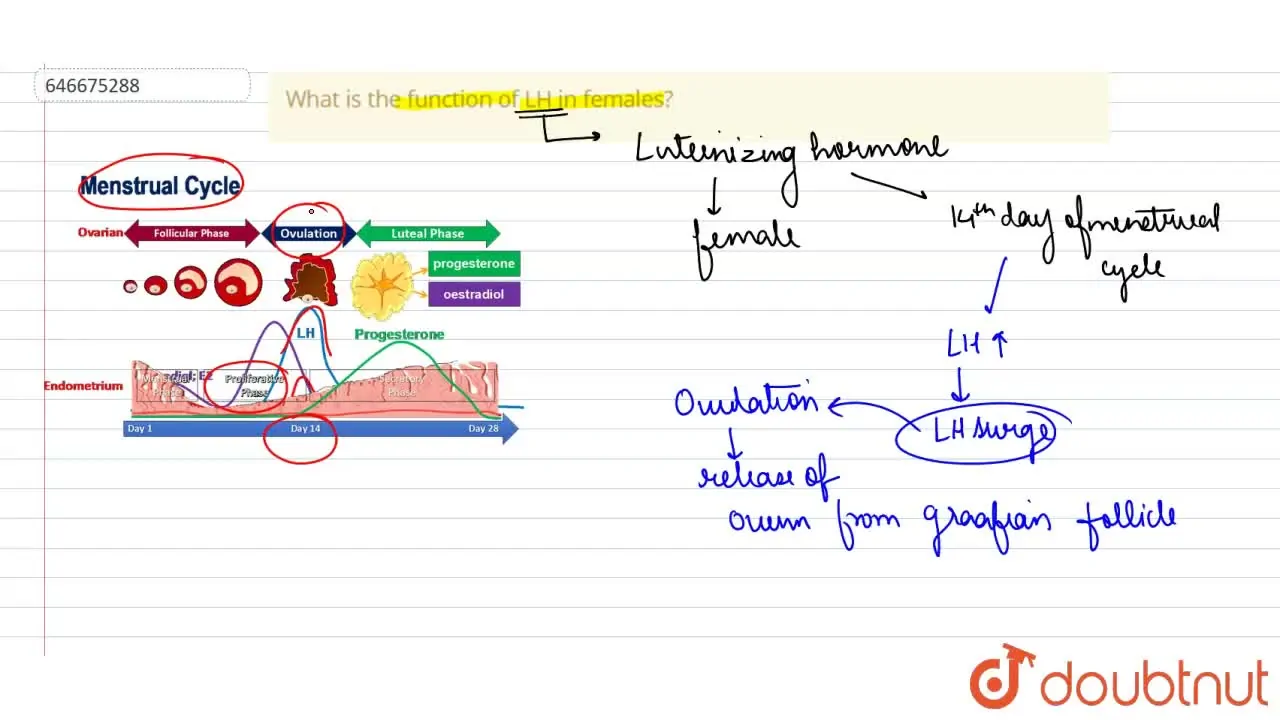 646675288
What is the function of LH in females?
Luteinizing hormone
female
14th day of menstrual
cycle
LH ↑
LH surge
Ovulation
release of
ovum from graafian follicle
Menstrual Cycle
Ovarian
Follicular Phase
Ovulation
Luteal Phase
progesterone
oestradiol
LH
Progesterone
Endometrium
Menstrual
Phase
E2
Proliferative
Phase
Secretory
Phase
Day 1
Day 14
Day 28
doubtnut